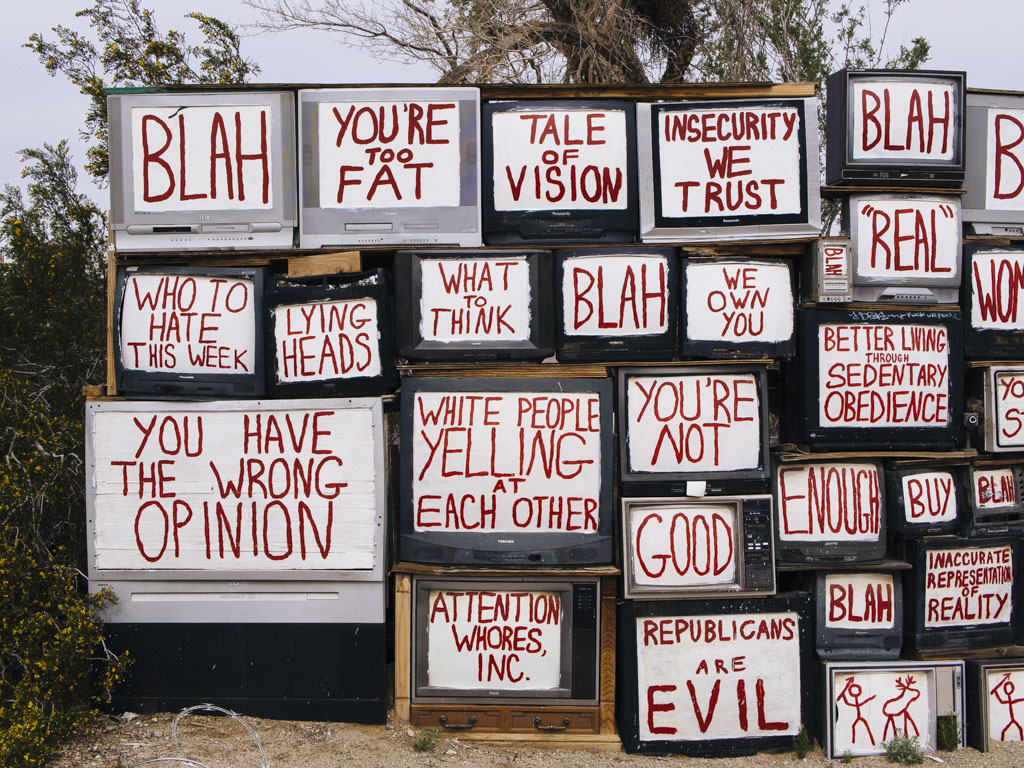 BLAH
YOU'RE
TOO
FAT
TALE
OF
VISION
INSECURITY
WE
TRUST
BLAH
WHO TO
HATE
THIS WEEK
LYING
HEADS
WHAT
TO
THINK
BLAH
WE
OWN
YOU
BLAH
"REAL"
YOU HAVE
THE WRONG
OPINION
WHITE PEOPLE
YELLING
AT
EACH OTHER
YOU'RE
NOT
BETTER LIVING
THROUGH
SEDENTARY
OBEDIENCE
GOOD
ENOUGH
BUY
BLAH
ATTENTION
WHORES,
INC.
REPUBLICANS
ARE
EVIL
BLAH
INACCURATE
REPRESENTATION
OF
REALITY